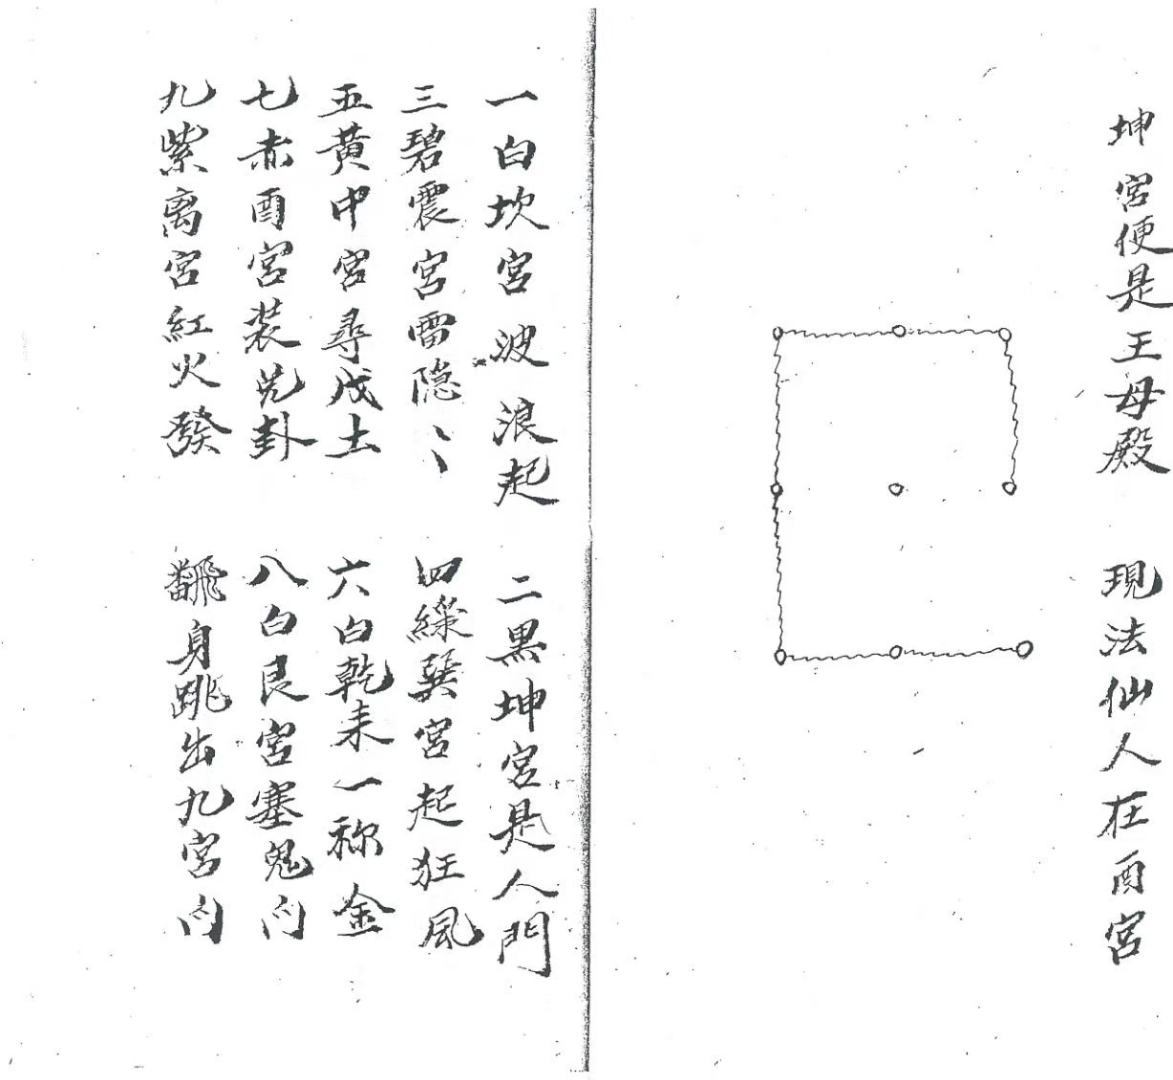 坤宮便是王母殿 現法仙人在酉宮
一白坎宮波浪起 二黑坤宮是人門
三碧震宮雷隐〻 四綠巽宮起狂風
五黃中宮尋戊土 六白乾来一称金
七赤酉宮装兑卦 八白艮宮塞鬼门
九紫离宮紅火發 飜身跳出九宮门